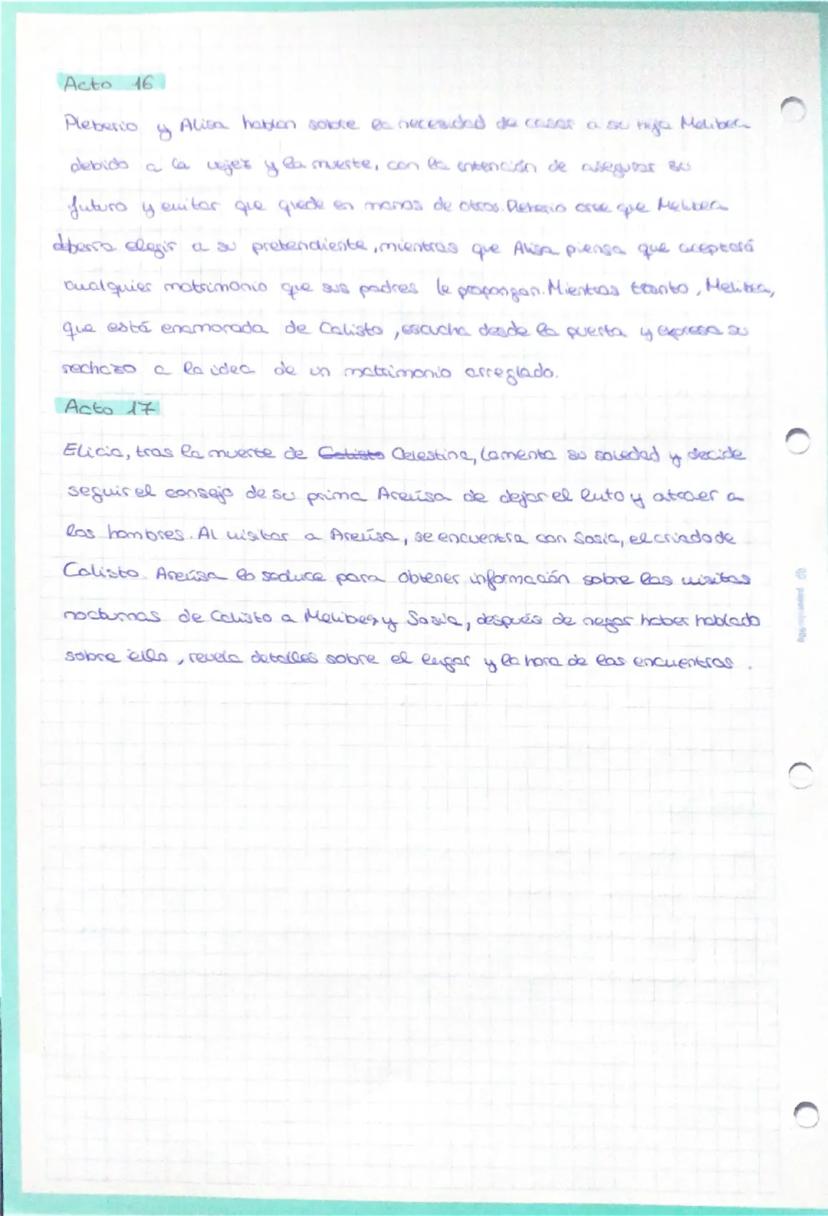 Acto 16
Pleberio y Alisa hablan sobre la necesidad de casar a su hija Melibea
debido a la vejez y la muerte, con la intención de asegurar su
futuro y evitar que quede en manos de otros. Pleberio cree que Melibea
debería elegir a su pretendiente, mientras que Alisa piensa que aceptará
cualquier matrimonio que sus padres le propongan. Mientras tanto, Melibea,
que está enamorada de Calisto, escucha desde la puerta y expresa su
rechazo a la idea de un matrimonio arreglado.
Acto 17
Elicia, tras la muerte de Calisto Celestina, lamenta su soledad y decide
seguir el consejo de su prima Areúsa de dejar el luto y atraer a
los hombres. Al visitar a Areúsa, se encuentra con Sosia, el criado de
Calisto. Areúsa lo seduce para obtener información sobre las visitas
nocturnas de Calisto a Melibea y Sosia, después de negar haber hablado
sobre ello, revela detalles sobre el lugar y la hora de los encuentros.